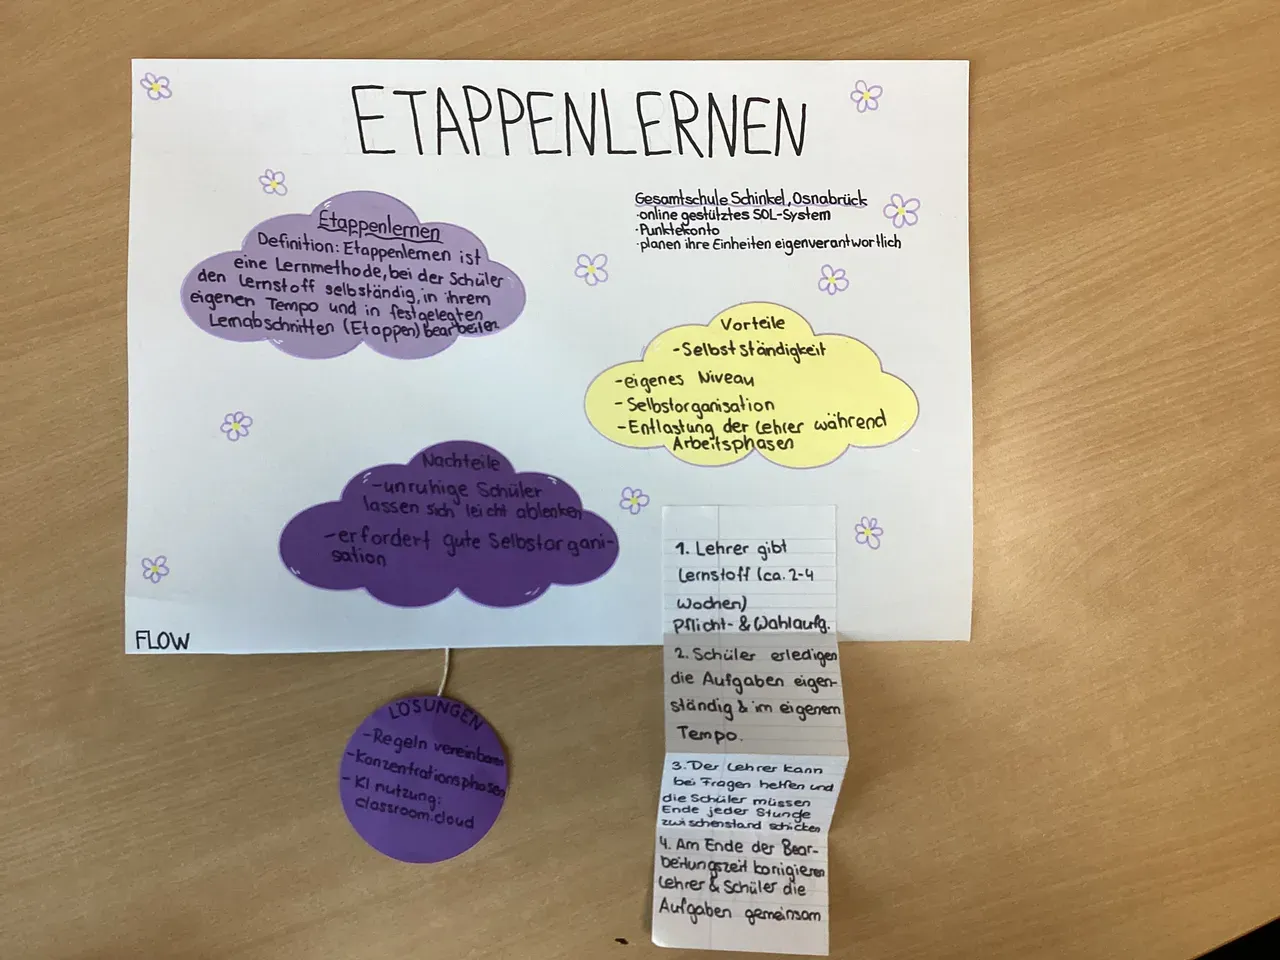 ETAPPENLERNEN
Etappenlernen
Definition: Etappenlernen ist
eine Lernmethode, bei der Schüler
den Lernstoff selbständig, in ihrem
eigenen Tempo und in festgelegten
Lernabschnitten (Etappen) bearbeiten
Gesamtschule Schinkel, Osnabrück
·online gestütztes SOL-System
·Punktekonto
·planen ihre Einheiten eigenverantwortlich
Vorteile
-Selbstständigkeit
-eigenes Niveau
-Selbstorganisation
-Entlastung der Lehrer während
Arbeitsphasen
Nachteile
-unruhige Schüler
lassen sich leicht ablenken
-erfordert gute Selbstorgani-
sation
FLOW
LÖSUNGEN
-Regeln vereinbaren
-Konzentrationsphasen
-KI nutzung:
classroom.cloud
1. Lehrer gibt
Lernstoff (ca. 2-4
Wochen)
Pflicht- & Wahlaufg.
2. Schüler erledigen
die Aufgaben eigen-
ständig & im eigenem
Tempo.
3. Der Lehrer kann
bei Fragen helfen und
die Schüler müssen
Ende jeder Stunde
zwischenstand schicken
4. Am Ende der Bear-
beitungszeit korrigieren
Lehrer & Schüler die
Aufgaben gemeinsam